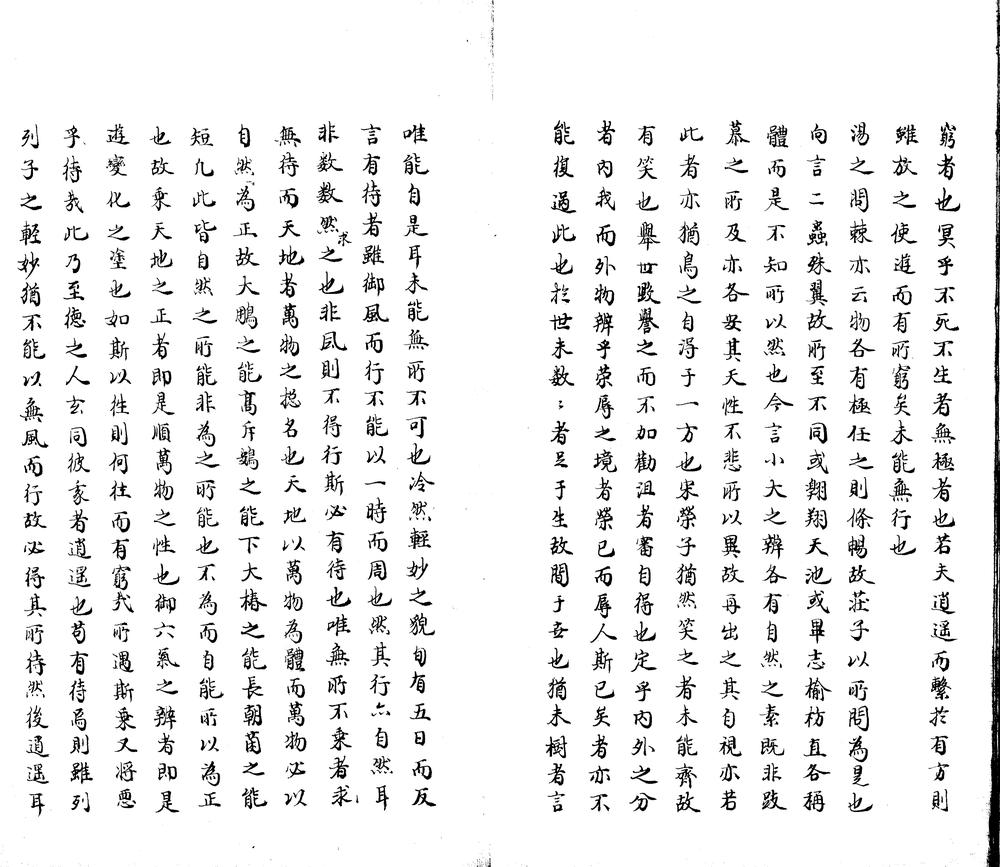 窮者也冥乎不死不生者無極者也若夫逍遥而繫於有方則
雖放之使遊而有所窮矣未能無行也
湯之問棘亦云物各有極任之則條暢故莊子以所問為是也
向言二蟲殊翼故所至不同或翱翔天池或畢志榆枋直各稱
體而足不知所以然也今言小大之辨各有自然之素既非跂
慕之所及亦各安其天性不悲所以異故再出之其自視亦若
此者亦猶鳥之自得于一方也宋榮子猶然笑之者未能齊故
有笑也舉世毀譽之而不加勸沮者審自得也定乎内外之分
者内我而外物辨乎荣辱之境者榮已而辱人斯已矣者亦不
能復過此也於世未数〻者足于生故間于世也猶未樹者言
唯能自是耳未能無所不可也冷然軽妙之貌旬有五日而反
言有待者雖御風而行不能以一時而周也然其行亦自然耳
非数数然求之也非風則不得行斯必有待也唯無所不乘者求
無待而天地者萬物之揔名也天地以萬物為體而萬物必以
自然為正故大鵬之能髙斥鷃之能下大椿之能長朝菌之能
短凢此皆自然之所能非為之所能也不為而自能所以為正
也故乘天地之正者即是順萬物之性也御六氣之辨者即是
遊變化之塗也如斯以徃則何徃而有窮㢤所遇斯乗又将惡
乎待㢤此乃至徳之人玄同彼我者逍遥也苟有待焉則雖列
列子之軽妙猶不能以無風而行故必得其所待然後逍遥耳